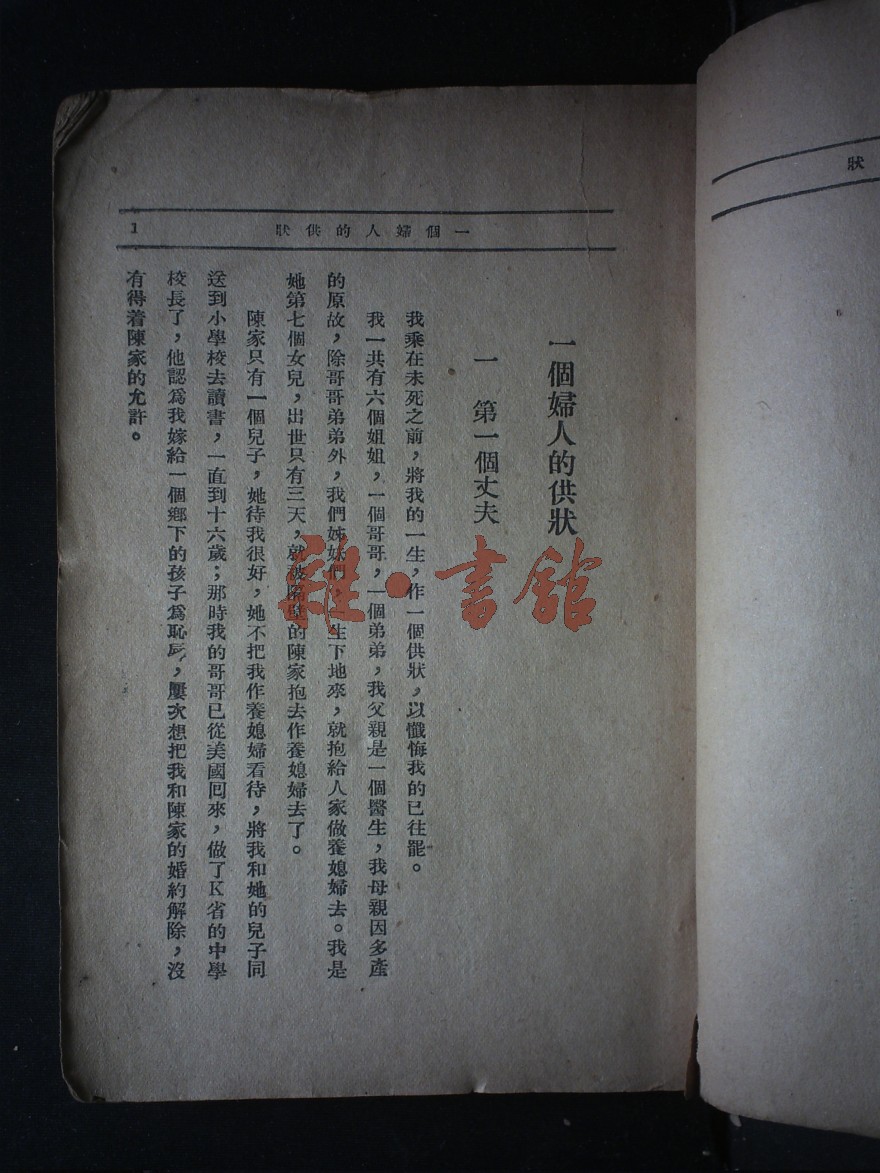 一個婦人的供狀
1
一個婦人的供狀
一 第一個丈夫
我乘在未死之前，將我的一生，作一個供狀，以懺悔我的已往罷。
我一共有六個姐姐，一個哥哥，一個弟弟，我父親是一個醫生，我母親因多產
的原故，除哥哥弟弟外，我們姊妹們，一生下地來，就抱給人家做養媳婦去。我是
她第七個女兒，出世只有三天，就被隔壁的陳家抱去作養媳婦去了。
陳家只有一個兒子，她待我很好，她不把我作養媳婦看待，將我和她的兒子同
送到小學校去讀書，一直到十六歲；那時我的哥哥已從美國回來，做了K省的中學
校長了，他認爲我嫁給一個鄉下的孩子爲恥辱，屢次想把我和陳家的婚約解除，沒
有得着陳家的允許。
雜·書館
狀